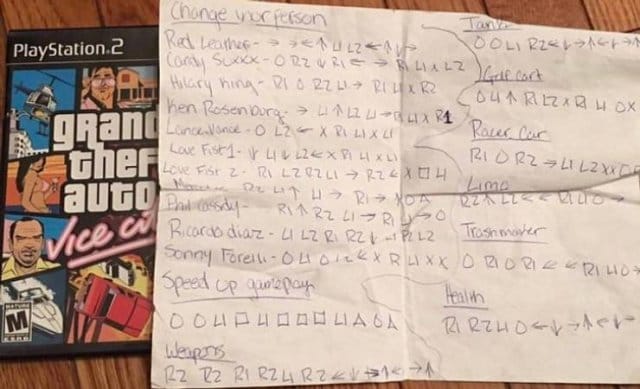 PlayStation.2
grand
theft
auto
Vice
MATURE
M
ESRB
Change your person
Red Leather - → → ← ↑ L1 L2 ← ↑ ↓ →
Candy Suxxx - O R2 ↓ R1 ← → R1 L1 X L2
Hilary King - R1 O R2 L1 → R1 L1 X R2
Ken Rosenburg - → L1 ↑ L2 L1 → R1 L1 X R1
Lance Vance - O L2 ← X R1 L1 X L1
Love Fist 1 - ↓ L1 ↓ L2 ← X R1 L1 X L1
Love Fist 2 - R1 L2 R2 L1 → R2 ← X □ L1
R2 L1 ↑ L1 → R1 →
Phil Cassidy - → R1 ↑ R2 L1 → R1 L1 → O
Ricardo diaz - L1 L2 R1 R2 ↓ L1 R2 L2
Sonny Forelli - O L1 O L2 ← X R1 L1 X X
Speed up gameplay
O O L1 □ L1 □ □ □ L1 △ O △
Weapons
R2 R2 R1 R2 L1 R2 ← ↓ → ↑ ← ↓ → ↑
Tank
O O L1 R2 ← ↓ → ↑ ← ↓ → ↑
Golf cart
O L1 ↑ R1 L2 X R1 L1 O X
Racer Car
R1 O R2 → L1 L2 X X
Limo
R2 ↑ L2 ← ← R1 L1 O →
Trashmaster
O R1 O R1 ← ← R1 L1 O →
Health
R1 R2 L1 O ← ↓ → ↑ ← ↓